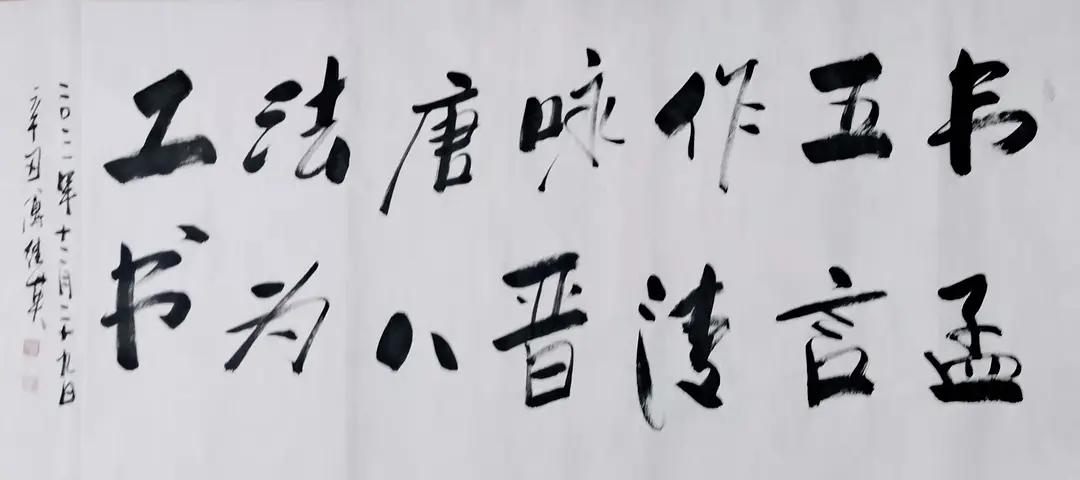 书孟
五言
作清
咏晋
唐八
法为
工书
二〇二一年十二月二十九日
辛丑傅英